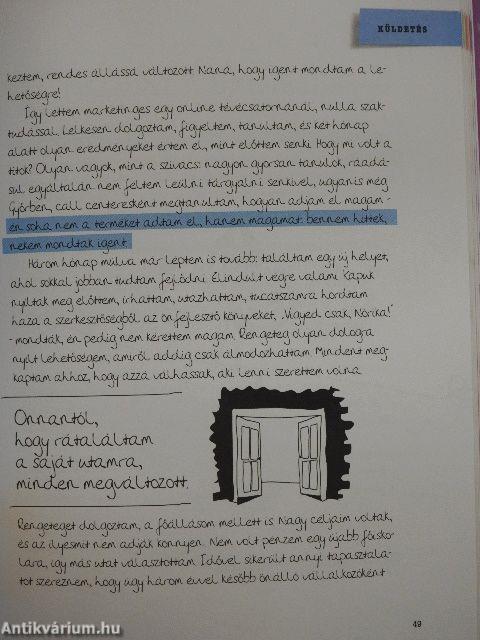 KÜLDETÉS
keztem, rendes állássá változott. Naná, hogy igent mondtam a le-
hetőségre!
Így lettem marketinges egy online tévécsatornánál, nulla szak-
tudással. Lelkesen dolgoztam, figyeltem, tanultam, és két hónap
alatt olyan eredményeket értem el, mint előttem senki. Hogy mi volt a
titok? Olyan vagyok, mint a szivacs: nagyon gyorsan tanulok, ráadá-
sul egyáltalán nem féltem leülni tárgyalni senkivel, ugyanis még
Győrben, call centeresként megtanultam, hogyan adjam el magam –
én soha nem a terméket adtam el, hanem magamat: bennem hittek,
nekem mondtak igent.
Három hónap múlva már léptem is tovább: találtam egy új helyet,
ahol sokkal jobban tudtam fejlődni. Elindult végre valami. Kapuk
nyíltak meg előttem, írhattam, utazhattam, tucatszámra hordtam
haza a szerkesztőségből az önfejlesztő könyveket, „Vigyed csak, Nórika!"
– mondták, én pedig nem kérettem magam. Rengeteg olyan dologra
nyílt lehetőségem, amiről addig csak álmodozhattam. Mindent meg-
kaptam ahhoz, hogy azzá válhassak, aki lenni szerettem volna.
Onnantól,
hogy rátaláltam
a saját utamra,
minden megváltozott.
Rengeteget dolgoztam, a főállásom mellett is. Nagy céljaim voltak,
és az ilyesmit nem adják könnyen. Nem volt pénzem egy újabb főisko-
lára, így más utat választottam. Idővel sikerült annyi tapasztala-
tot szereznem, hogy úgy három évvel később önálló vállalkozóként
49
Antikvárium.hu